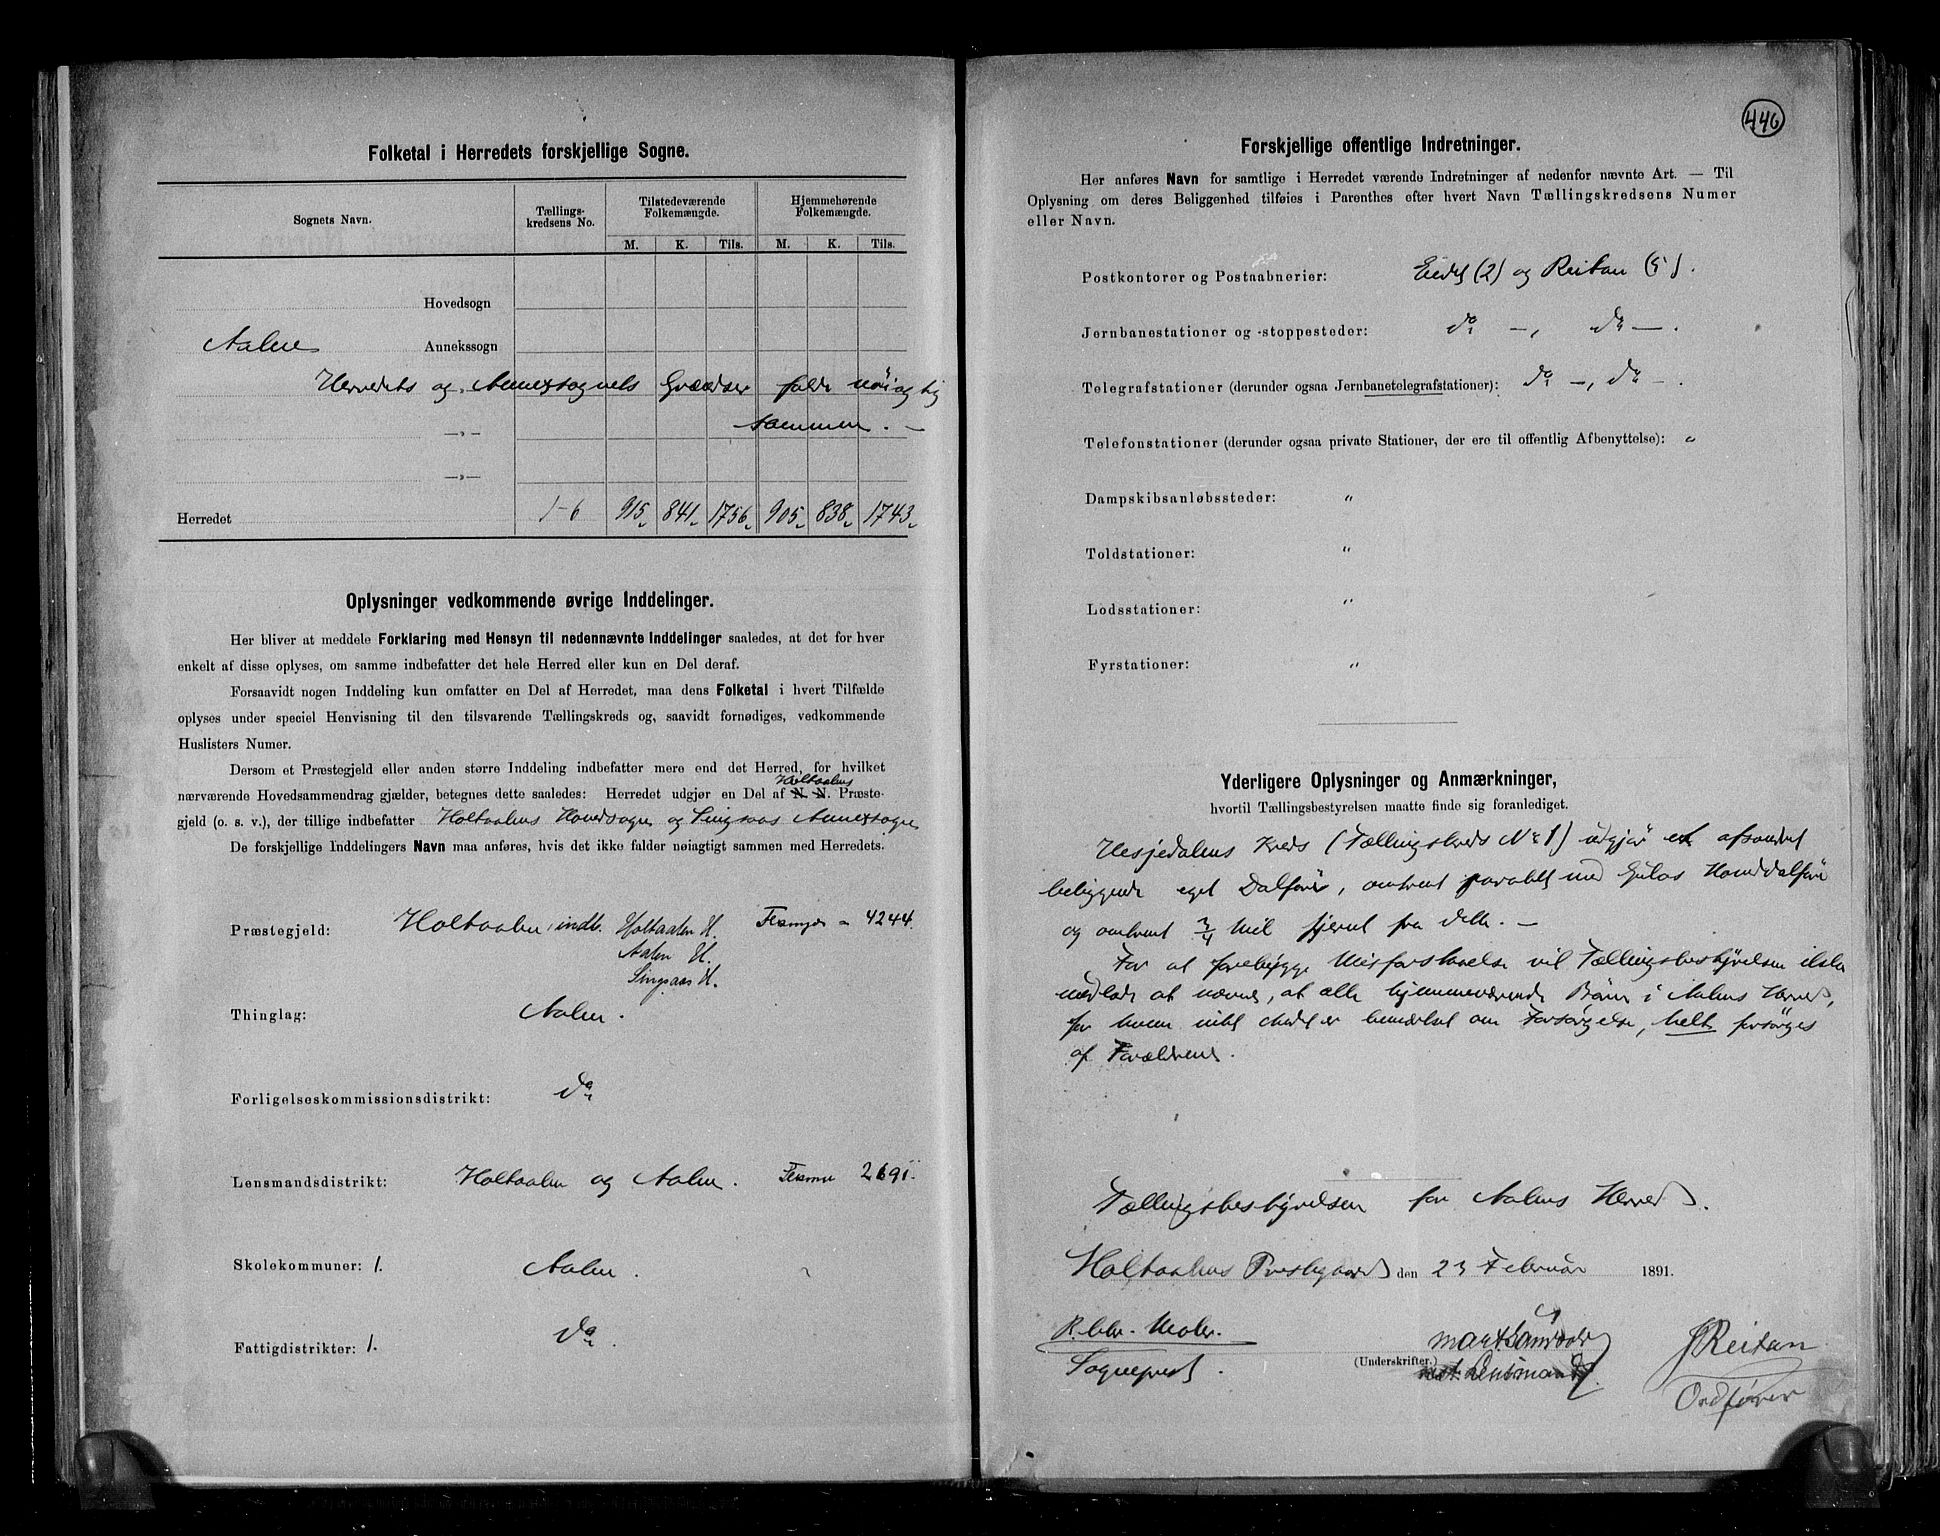 Folketal i Herredets forskjellige Sogne.
Sognets Navn.
Tællings-
kredsens No.
Tilstedeværende
Folkemængde.
Hjemmehørende
Folkemængde.
M. K. Tils. M. K. Tils.
Hovedsogn
Aalen Annekssogn
Herredets og Annexsognets Grændser falde nøiagtig
sammen. —
—„—
—„—
Herredet 1-6 915 841 1756 905 838 1743
Oplysninger vedkommende øvrige Inddelinger.
Her bliver at meddele Forklaring med Hensyn til nedennævnte Inddelinger saaledes, at det for hver
enkelt af disse oplyses, om samme indbefatter det hele Herred eller kun en Del deraf.
Forsaavidt nogen Inddeling kun omfatter en Del af Herredet, maa dens Folketal i hvert Tilfælde
oplyses under speciel Henvisning til den tilsvarende Tællingskreds og, saavidt fornødiges, vedkommende
Huslisters Numer.
Dersom et Præstegjeld eller anden større Inddeling indbefatter mere end det Herred, for hvilket
Holtaalens
nærværende Hovedsammendrag gjælder, betegnes dette saaledes: Herredet udgjør en Del af N. N. Præste-
gjeld (o. s. v.), der tillige indbefatter Holtaalens Hovedsogn og Singsaas Annexsogn
De forskjellige Inddelingers Navn maa anføres, hvis det ikke falder nøiagtig sammen med Herredets.
Præstegjeld: Holtaalen, indb. Holtaalen H. 4244.
Aalen H.
Singsaas H.
Thinglag: Aalen.
Forligelseskommissionsdistrikt: do
Lensmandsdistrikt: Holtaalen og Aalen. 2691.
Skolekommuner: 1. Aalen.
Fattigdistrikter: 1. do.
446
Forskjellige offentlige Indretninger.
Her anføres Navn for samtlige i Herredet værende Indretninger af nedenfor nævnte Art. — Til
Oplysning om deres Beliggenhed tilføies i Parenthes efter hvert Navn Tællingskredsens Numer
eller Navn.
Postkontorer og Postaabnerier: Eidet (2) og Reitan (5).
Jernbanestationer og -stoppesteder: do —, do —.
Telegrafstationer (derunder ogsaa Jernbanetelegrafstationer): do —, do —.
Telefonstationer (derunder ogsaa private Stationer, der ere til offentlig Afbenyttelse): „
Dampskibsanløbssteder: „
Toldstationer: „
Lodsstationer: „
Fyrstationer: „
Yderligere Oplysninger og Anmærkninger,
hvortil Tællingsbestyrelsen maatte finde sig foranlediget.
Hesjedalens Kreds (Tællingskreds No 1) udgjør et afsondret
beliggende eget Dalføre, omtrent parallelt med Gulas Hoveddalføre
og omtrent 3/4 Mil fjernet fra dette. —
For at forebygge Misforstaaelse vil Tællingsbestyrelsen ikke
undlade at nævne, at alle hjemmeværende Børn i Aalens Herred,
for hvem intet andet er bemærket om Forsørgelse, helt forsørges
af Forældrene.
Tællingsbestyrelsen for Aalens Herred.
Holtaalens Prestegaard den 23 Februar 1891.
Sogneprest.
(Underskrifter.)
Lensmand
J Reitan
Ordfører